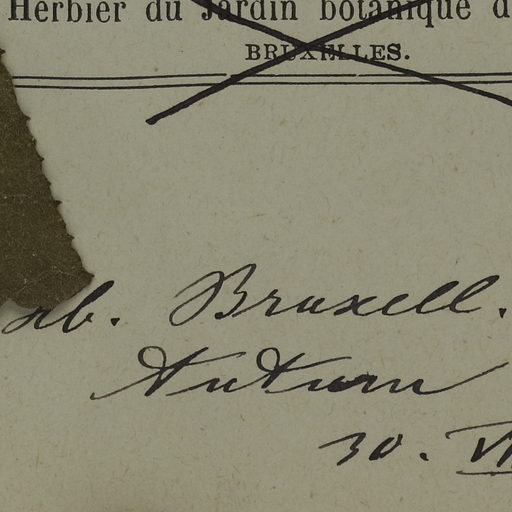 Herbier du Jardin botanique d
BRUXELLES.
rb. Bruxell.
Auturn
30. VI